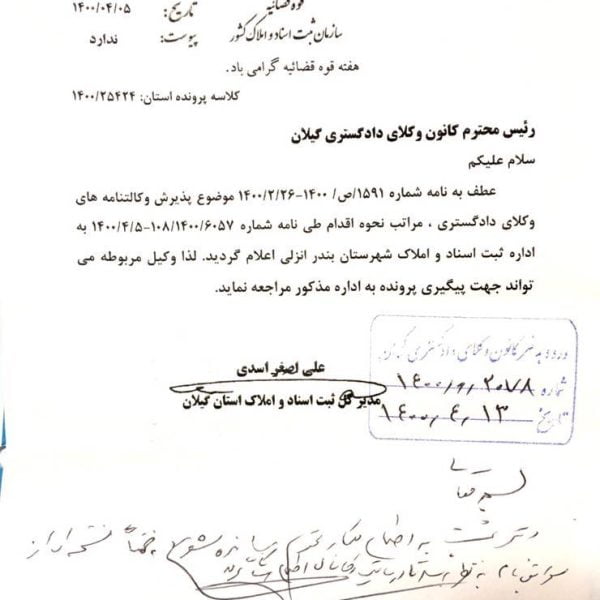 قوه قضائیه
تاریخ: ۱۴۰۰/۰۴/۰۵
سازمان ثبت اسناد و املاک کشور
پیوست: ندارد
هفته قوه قضائیه گرامی باد.
کلاسه پرونده استان: ۱۴۰۰/۲۵۴۲۴
رئیس محترم کانون وکلای دادگستری گیلان
سلام علیکم
عطف به نامه شماره ۱۵۹۱/ص/ ۱۴۰۰-۱۴۰۰/۲/۲۶ موضوع پذیرش وکالتنامه های
وکلای دادگستری ، مراتب نحوه اقدام طی نامه شماره ۱۰۸/۱۴۰۰/۶۰۵۷-۱۴۰۰/۴/۵ به
اداره ثبت اسناد و املاک شهرستان بندر انزلی اعلام گردید. لذا وکیل مربوطه می
تواند جهت پیگیری پرونده به اداره مذکور مراجعه نماید.
علی اصغر اسدی
مدیر کل ثبت اسناد و املاک استان گیلان
ورود به دفتر کانون وکلای دادگستری گیلان
شماره ۱۴۰۰٫ر٫۲۰۷۸
تاریخ ۱۴۰۰٫۴٫۱۳